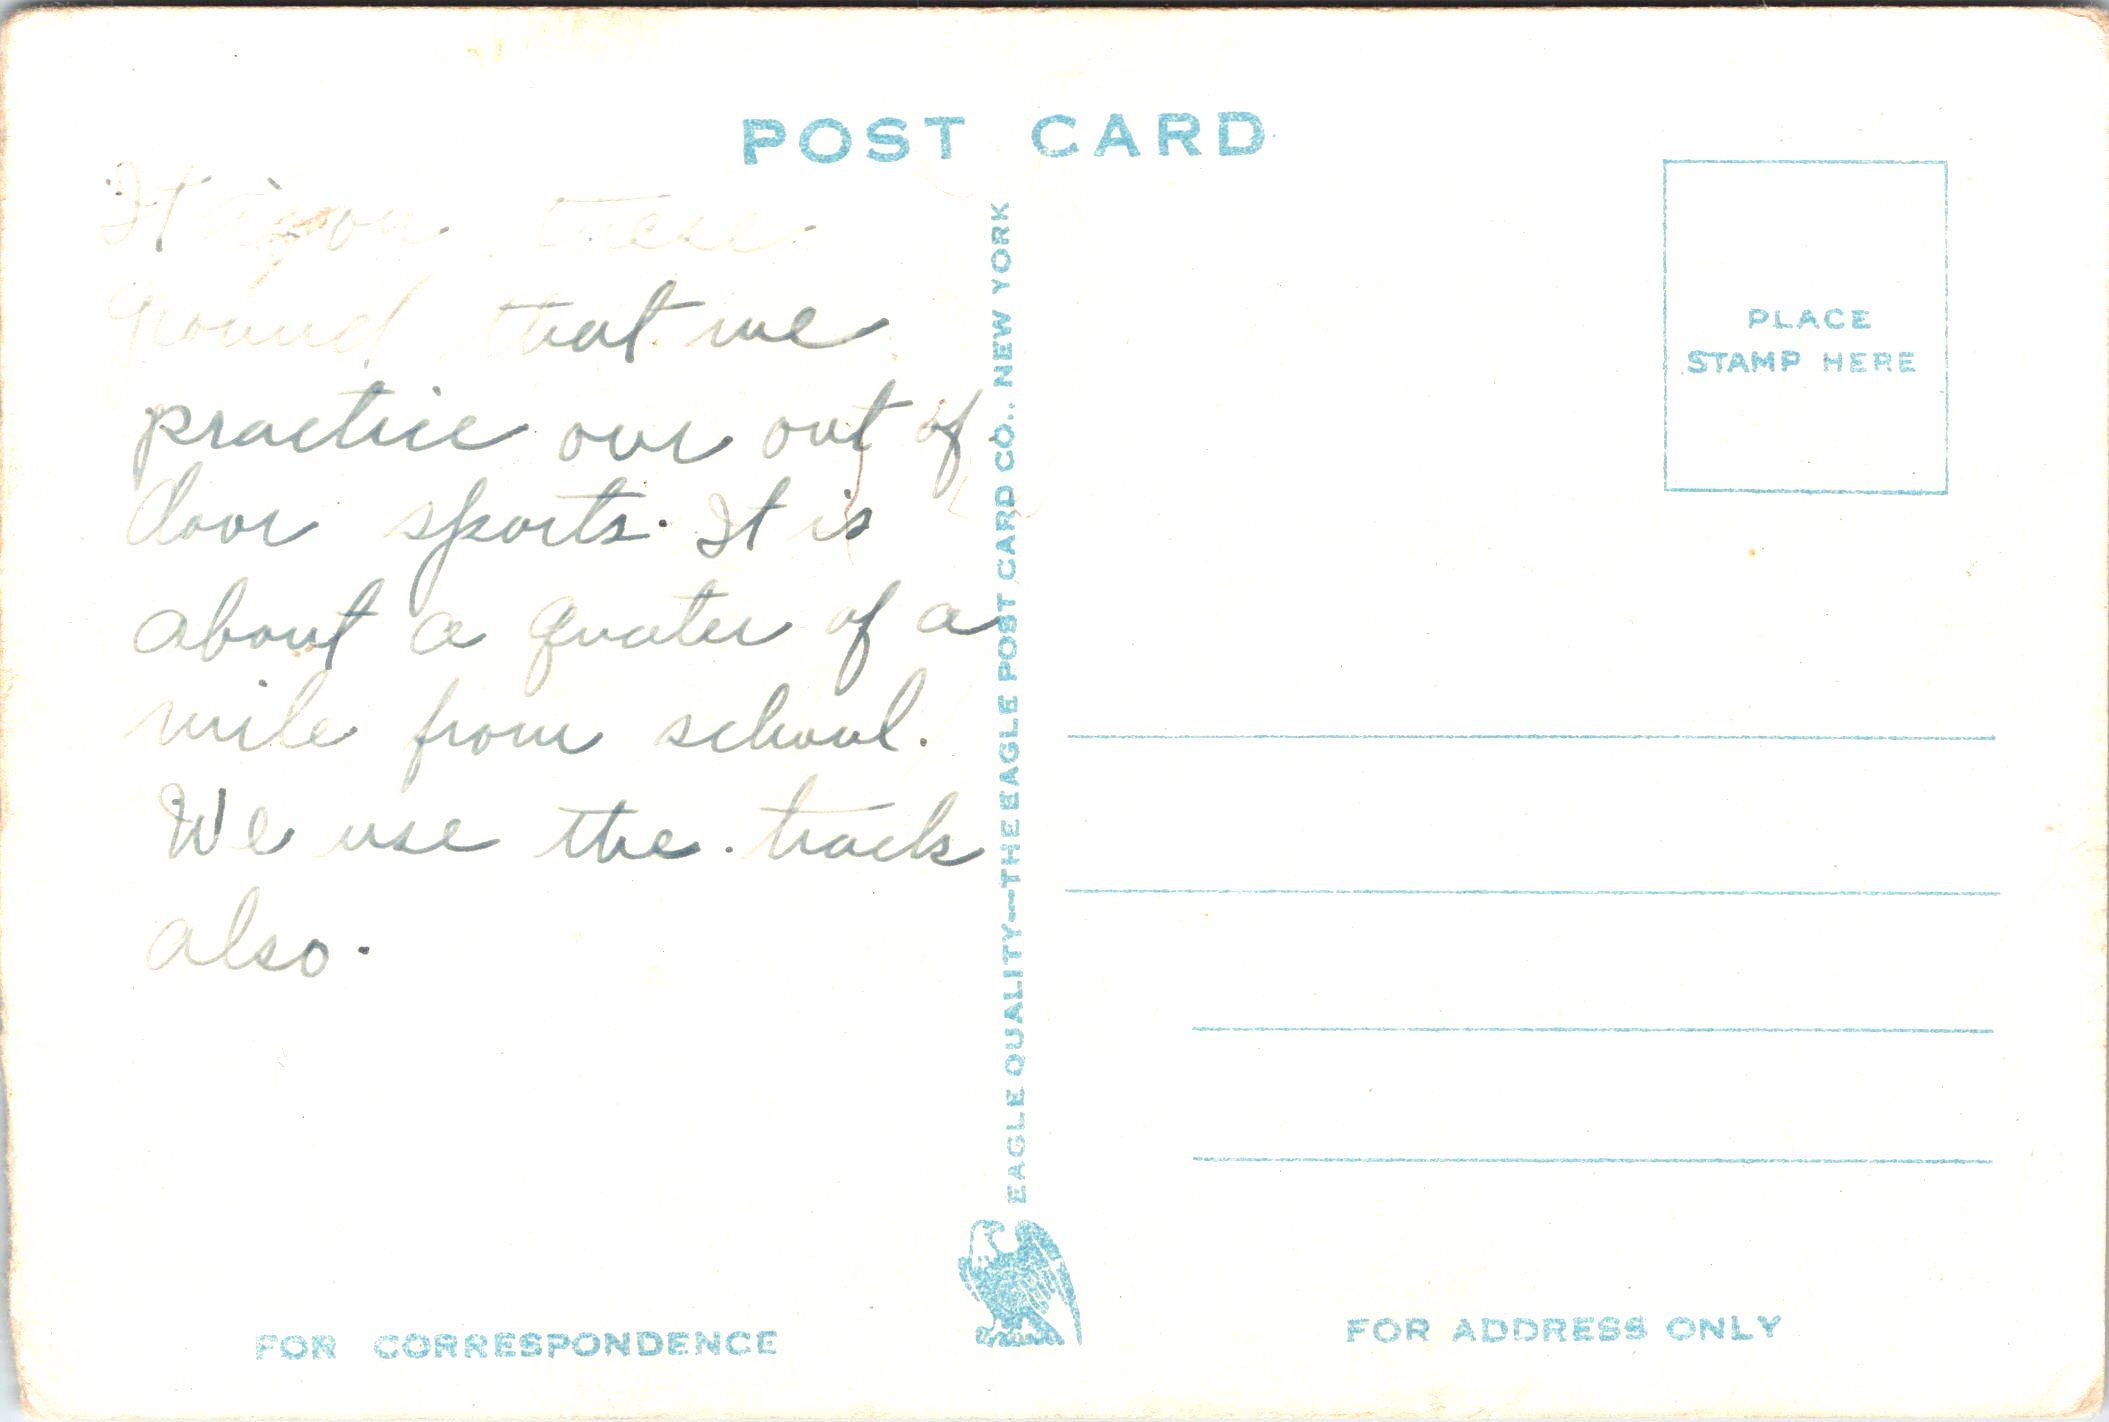 POST CARD
It is on these
ground that we
practice our out of
door sports. It is
about a quater of a
mile from school.
We use the track
also.
EAGLE QUALITY—THE EAGLE POST CARD CO., NEW YORK
PLACE
STAMP HERE
FOR CORRESPONDENCE
FOR ADDRESS ONLY